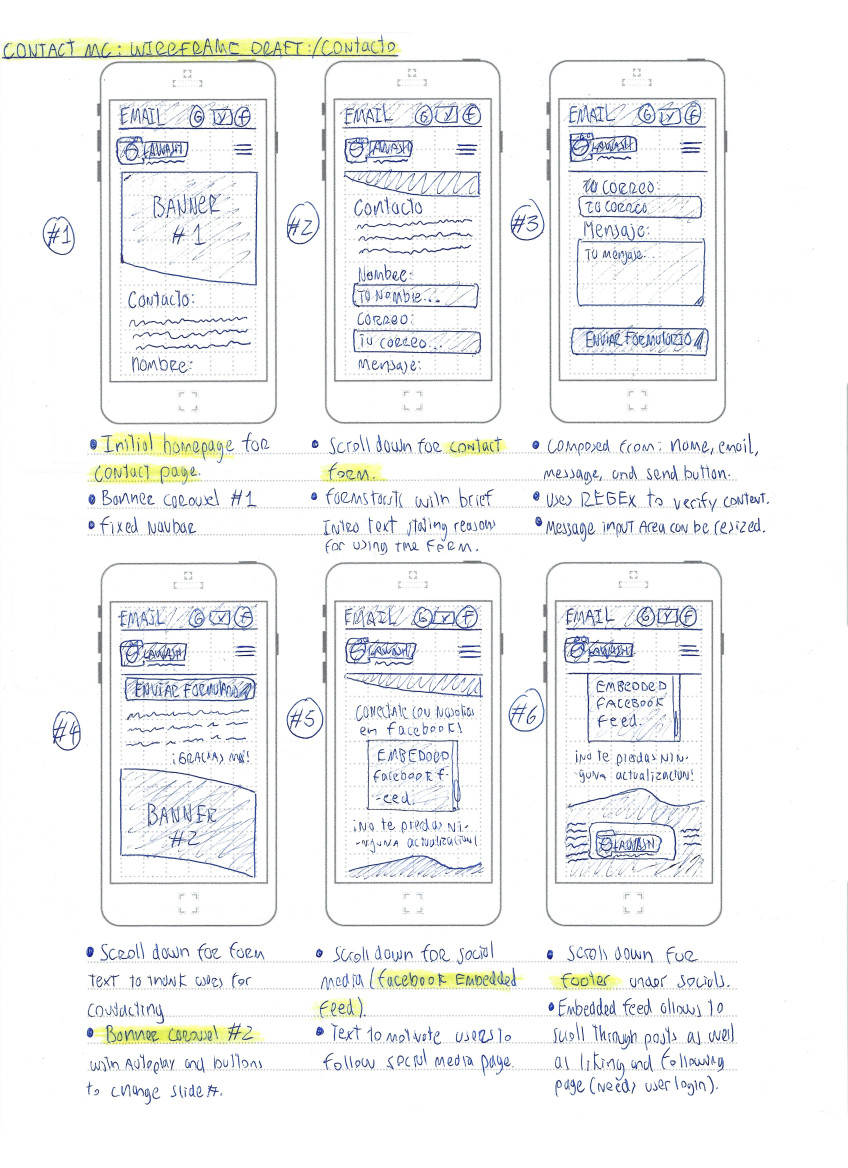 CONTACT ME: WIREFRAME DRAFT:/Contacto
EMAIL G Y F
LAWASH
BANNER
#1
Contacto:
Nombre:
#1
EMAIL G Y F
LAWASH
Contacto
Nombre:
Tu Nombre...
Correo:
Tu correo...
Mensaje:
#2
EMAIL G Y F
LAWASH
Tu correo:
Tu correo
Mensaje:
Tu mensaje..
ENVIAR FORMULARIO
#3
• Initial homepage for
contact page.
• Banner carousel #1
• Fixed Navbar
• Scroll down for contact
form.
• Form starts with brief
Intro text stating reasons
for using the form.
• Composed from: name, email,
message, and send button.
• Uses REGEX to verify content.
• Message input Area can be resized.
EMAIL G Y F
LAWASH
ENVIAR FORMULARIO
¡GRACIAS
BANNER
#2
#4
EMAIL G Y F
LAWASH
Conectate con nosotros
en facebook!
EMBEDDED
facebook f-
-eed.
¡No te pierdas ni-
-nguna actualizacion!
#5
EMAIL G Y F
LAWASH
EMBEDDED
FACEBOOK
feed.
¡No te pierdas nin-
guna actualizacion!
LAWASH
#6
• Scroll down for form
text to thank users for
contacting
• Banner carousel #2
with Autoplay and buttons
to change slides.
• Scroll down for social
media (facebook Embedded
Feed).
• Text to motivate users to
follow social media page.
• Scroll down for
footer under socials.
• Embedded feed allows to
scroll through posts as well
as liking and following
page (needs user login).